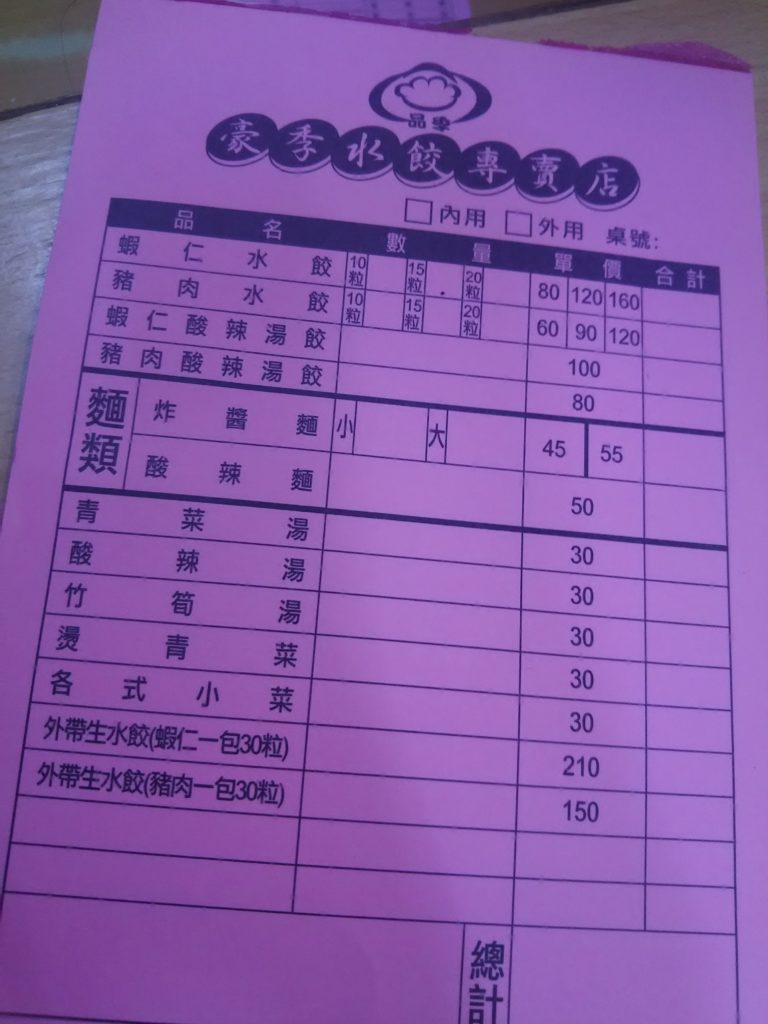 品季
豪季水餃專賣店
□內用 □外用 桌號:
品名 數量 單價 合計
蝦仁水餃 10粒 15粒 20粒 80 120 160
豬肉水餃 10粒 15粒 20粒 60 90 120
蝦仁酸辣湯餃 100
豬肉酸辣湯餃 80
麵類
炸醬麵 小 大 45 55
酸辣麵 50
青菜湯 30
酸辣湯 30
竹筍湯 30
燙青菜 30
各式小菜 30
外帶生水餃(蝦仁一包30粒) 210
外帶生水餃(豬肉一包30粒) 150
總計